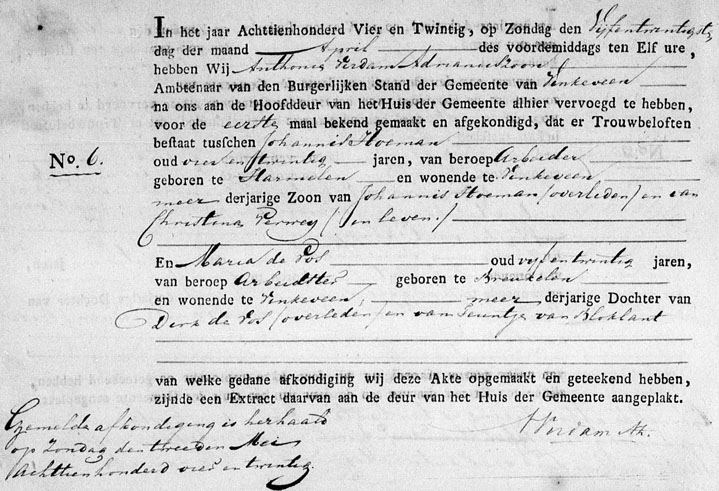 In het jaar Achttienhonderd Vier en Twintig, op Zondag den Vyfentwintigst
dag der maand April des voordemiddags ten Elf ure,
hebben Wij Anthonie Verdam Adriaanszoon
Ambtenaar van den Burgerlijken Stand der Gemeente van Vinkeveen
na ons aan de Hoofddeur van het Huis der Gemeente alhier vervoegd te hebben,
voor de eerste maal bekend gemaakt en afgekondigd, dat er Trouwbeloften
bestaat tusschen Johannis Hoeman
No. 6.
oud vier en twintig jaren, van beroep Arbeider
geboren te Harmelen en wonende te Vinkeveen
meer derjarige Zoon van Johannis Hoeman (overleden) en van
Christina Verwey (in leven.)
En Maria de Vos oud vyfentwintig jaren,
van beroep Arbeidster geboren te Breukelen
en wonende te Vinkeveen, meer derjarige Dochter van
Dirk de Vos (overleden) en van Teuntje van Bloklant
van welke gedane afkondiging wij deze Akte opgemaakt en geteekend hebben,
zijnde een Extract daarvan aan de deur van het Huis der Gemeente aangeplakt.
Gemelde afkondeging is herhaald
op Zondag den tweeden Mei
Achttienhonderd vier en twintig.
AVerdam Az.